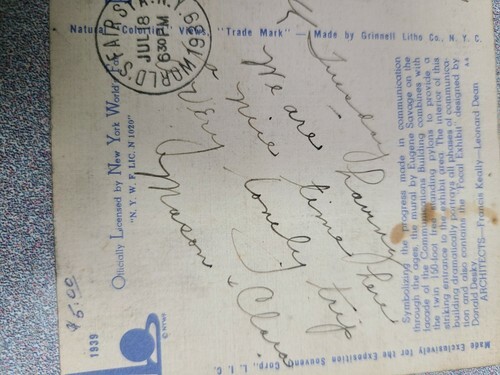 Natural Color Vues. "Trade Mark" — Made by Grinnell Litho Co., N. Y. C.
WORLD'S FAIR STA. N.Y.
JUL 18
630PM
1939
Tuesday —
We are having
a nice time here
Very trip
Mason & Clara
Symbolizing the progress made in communication
through the ages, the mural by Eugene Savage on the
facade of the Communications Building combines with
the twin 150-foot freestanding pylons to provide a
striking entrance to the exhibit area. The interior of this
building dramatically portrays all phases of communica-
tion and also contains the "Focal Exhibit" designed by
Donald Deskey.
ARCHITECTS—Francis Keally—Leonard Dean
Officially Licensed by New York World's Fair
"N. Y. W. F. LIC. N 1020"
$5.00
1939
© NYWF
Made Exclusively for the Exposition Souvenir Corp., L. I. C.